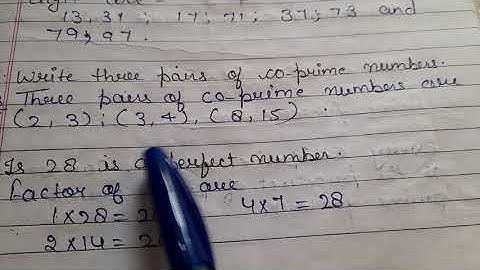 13, 31 ; 17; 71; 37; 73 and
79, 97.
Write three pairs of co-prime numbers.
Three pairs of co-prime numbers are
(2, 3); (3, 4), (8, 15)
Is 28 is a perfect number.
Factor of are
1 x 28 = 2 4 x 7 = 28
2 x 14 = 2